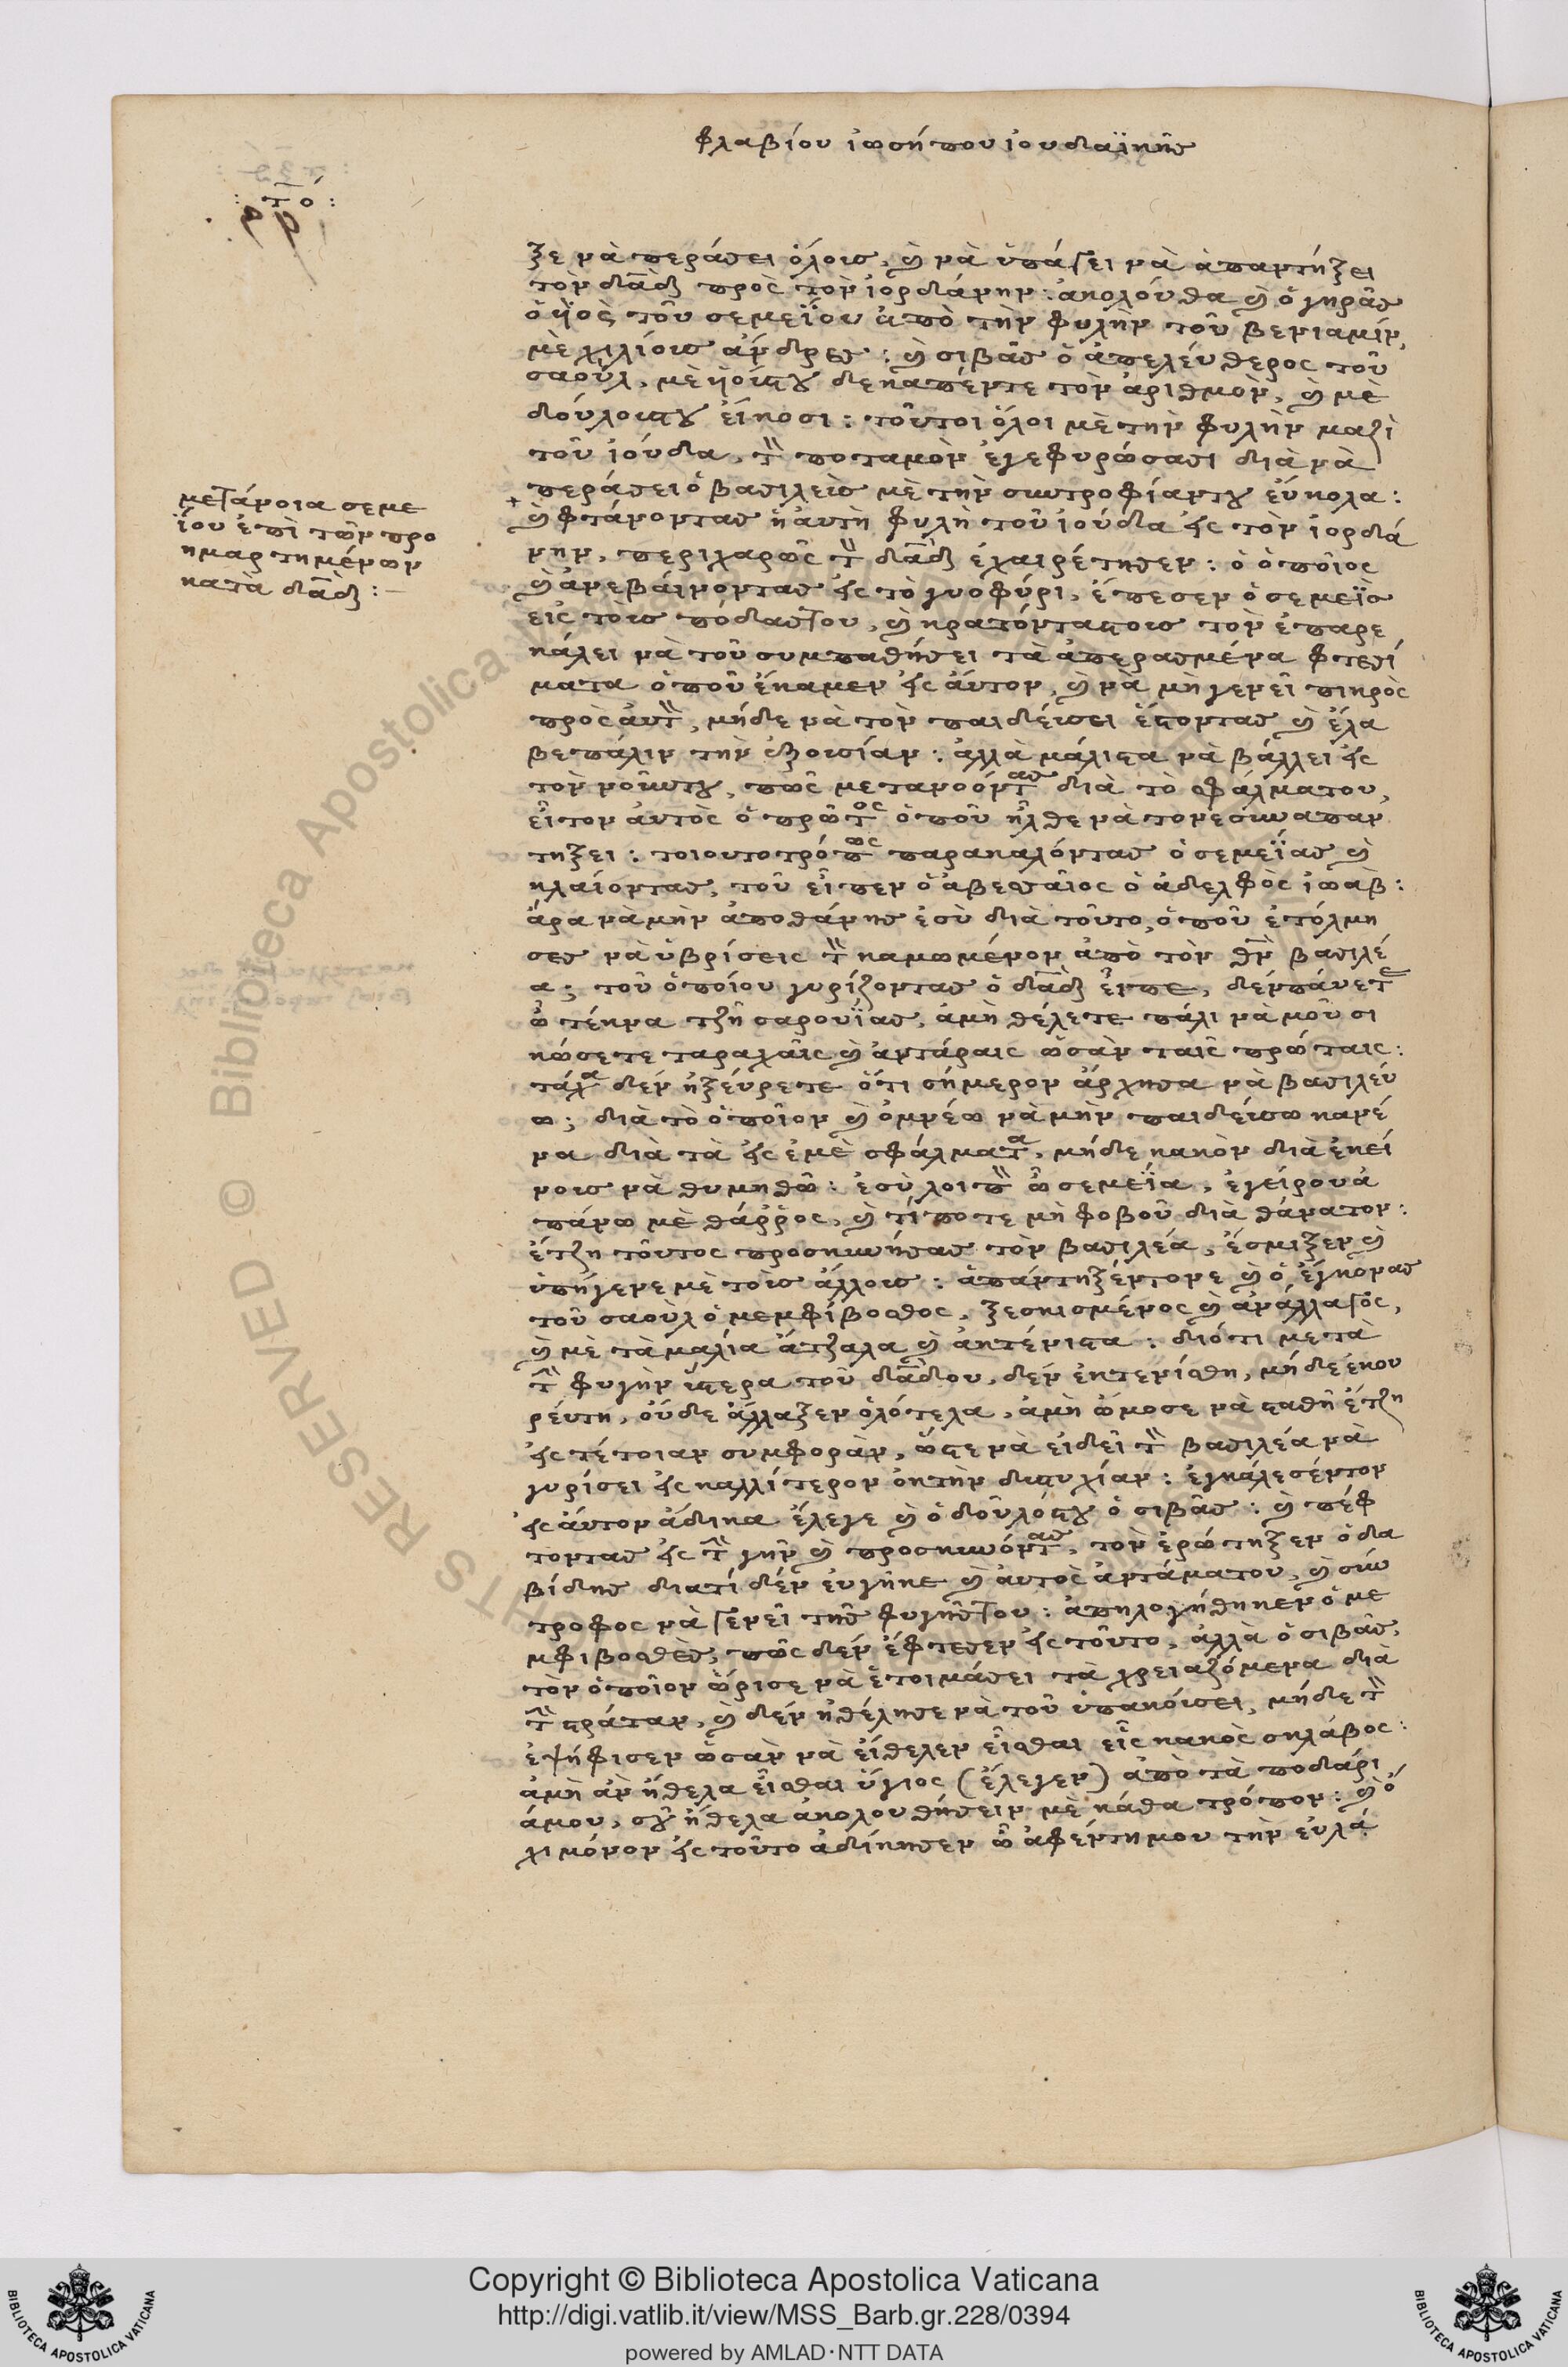 φλαβίου ἰωσήπου ἰουδαϊκῆς
: τό :
ξε νὰ περάσει ὁλοις, καὶ νὰ ὑπάγει νὰ ἀπαντήξει
τὸν δαδ πρὸς τὸν ἰορδάνην: ἀκολούθα καὶ ὁ γηρᾶς
ὁ ϋἱὸς τοῦ σεμεΐου ἀπὸ τὴν φυλὴν τοῦ βενιαμίν,
μὲ χιλίους ἄνδρες: καὶ σιβᾶς ὁ ἀπελεύθερος τοῦ
σαούλ, μὲ ϋἱούςτου δεκαπέντε τὸν ἀριθμὸν, καὶ μὲ
δούλουςτου εἴκοσι: τοῦτοι ὅλοι μὲ τὴν φυλὴν μαζὶ
τοῦ ἰούδα, τὸν ποταμὸν ἐγεφυρώσασι διὰ νὰ
περάσει ὁ βασιλεὺς μὲ τὴν συντροφίαντου εὔκολα:
καὶ φτάνοντας ἡ αὐτὴ φυλὴ τοῦ ἰούδα εἰς τὸν ἰορδά
νην, περιχαρῶς τὸν δαδ ἐχαιρέτησεν: ὁ ὁποῖος
καὶ ἀνεβαίνοντας εἰς τὸ γιοφύρι, ἔπεσεν ὁ σεμεΐς
εἰς τοὺς πόδαςτου, καὶ κρατόντας τους τὸν ἐπαρε
κάλει νὰ τοῦ συμπαθήσει τὰ ἀπερασμένα φτεσί
ματα ὁποῦ ἔκαμεν εἰς αὐτον, καὶ νὰ μὴ γενεῖ πικρὸς
πρὸς αὐτὸν, μήδε νὰ τὸν παιδεύσει ἔστοντας καὶ ἔλα
βε πάλιν τὴν ἐξουσίαν: ἀλλὰ μάλιστα νὰ βάλλει εἰς
τὸν νοῦντου, πῶς μετανοόντας διὰ τὸ σφάλματου,
εἶτον αὐτὸς ὁ πρῶτος ὁποῦ ἦλθε νὰ τονε συναπαν
τήξει: τοιουτοτρόπως παρακαλόντας ὁ σεμεΐας καὶ
κλαίοντας, τοῦ εἶπεν ὁ ἀβεσαῖος ὁ ἀδελφὸς ἰωάβ:
ἄρα νὰ μὴν ἀποθάνης ἐσὺ διὰ τοῦτο, ὁποῦ ἐτόλμη
σες νὰ ὑβρίσεις τὸν καμωμένον ἀπὸ τὸν θν βασιλέ
α; τοῦ ὁποίου γυρίζοντας ὁ δαδ εἶνπε, δενπάυετε
ὦ τέκνα τζῆ σαρουΐας, ἀμὴ θέλετε πάλι νὰ μοῦ σι
κώσετε ταραχαῖς καὶ ἀντάραις ὡσὰν ταῖς πρώταις:
τάχα δεν ἠξεύρετε ὅτι σήμερον ἄρχησα νὰ βασιλεύ
ω; διὰ τὸ ὁποῖον καὶ ὀμνέω νὰ μὴν παιδεύσω κανέ
να διὰ τὰ εἰς ἐμὲ σφάλματα, μήδε κακὸν διὰ ἐκεί
νους νὰ θυμηθῶ: ἐσὺ λοιπὸν ὦ σεμεΐα, ἐγείρου ἀ
πάνω μὲ θάῤῥος, καὶ τίποτε μὴ φοβοῦ διὰ θάνατον:
ἔτζη τοῦτος προσκυνήσας τὸν βασιλέα, ἔσμιξεν καὶ
ὑπήγενε μὲ τοὺς ἄλλους: ἀπάντηξέντονε καὶ ὁ ἔγκονας
τοῦ σαοὺλ ὁ μεμφίβοσθος, ξεσκισμένος καὶ ἀνάλλαγος,
καὶ μὲ τὰ μαλία ἄτζαλα καὶ ἀκτένιστα: διότι μετὰ
τὴν φυγὴν ὕστερα τοῦ δαδου, δεν ἐκτενίσθη, μήδε ἐκου
ρεύτη, οὐδε ἄλλαξεν ὁλότελα, ἀμὴ ὤμοσε νὰ σταθῆ ἔτζη
εἰς τέτοιαν συμφορὰν, ὥστε νὰ εἰδεῖ τὸν βασιλέα νὰ
γυρίσει εἰς καλλίτερον ἐκ τὴν δυστυχίαν: ἐγκάλεσέντον
εἰς αὐτον ἄδικα ἔλεγε καὶ ὁ δοῦλόςτου ὁ σιβᾶς: καὶ πέφ
τοντας εἰς τὴν γῆν καὶ προσκυνόντας, τὸν ἐρώτηξεν ὁ δα
βίδης διατί δὲν εὐγῆκε καὶ αὐτὸς ἀντάματου, καὶ σύν
τροφος νὰ γενεῖ τῆς φυγῆςτου: ἀπηλογήθηκεν ὁ με
μφιβοσθὲς, πῶς δεν ἔφτεσεν εἰς τοῦτο, ἀλλὰ ὁ σιβᾶς,
τὸν ὁποῖον ὥρισε νὰ ἑτοιμάσει τὰ χρειαζόμενα διὰ
τὴν στράταν, καὶ δεν ἠθέλησε νὰ τοῦ ὑπακούσει, μήδε τὸν
ἐψήφισεν ὡσὰν νὰ εἴθελεν εἶσθαι εἷς κακὸς σκλάβος:
ἀμὴ ἀν ἤθελα εἶσθαι ὕγιος (ἔλεγεν) ἀπὸ τὰ ποδάρι
άμου, σοῦ ἤθελα ἀκολουθήσειν μὲ κάθα τρόπον: καὶ ὄ
χι μόνον εἰς τοῦτο ἀδίκησεν ὦ ἀφέντημου τὴν εὐλά
μετάνοια σεμε
ΐου ἐπὶ τῶν προ
ημαρτημένων
κατὰ δαδ:
Copyright © Biblioteca Apostolica Vaticana
http://digi.vatlib.it/view/MSS_Barb.gr.228/0394
powered by AMLAD·NTT DATA